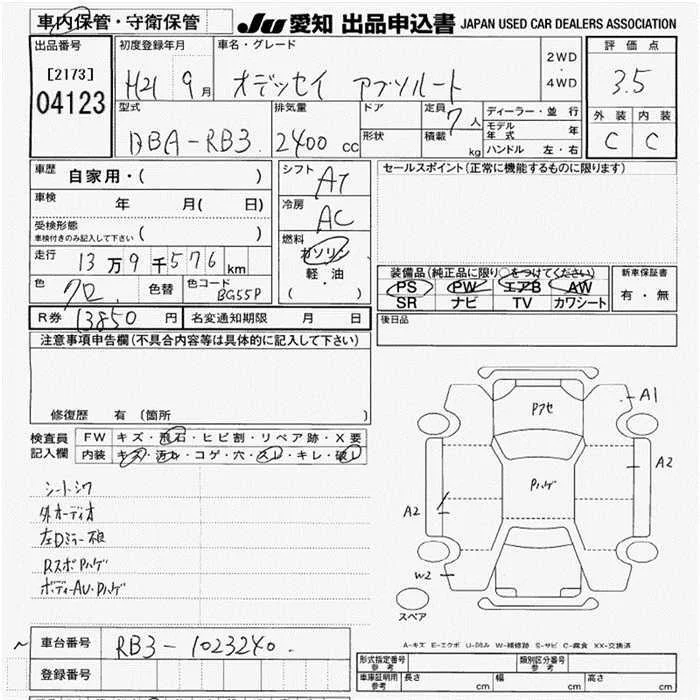 車内保管・守衛保管
JU 愛知 出品申込書 JAPAN USED CAR DEALERS ASSOCIATION
出品番号
[2173]
04123
初度登録年月
H21 9月
車名・グレード
オデッセイ アブソルート
2WD
・
4WD
評価点
3.5
外装 内装
C C
型式
DBA-RB3
排気量
2400 cc
ドア
形状
定員 7人
積載 kg
ディーラー・並行
モデル年式 年
ハンドル 左・右
車歴 自家用・( )
車検 年 月(日)
受検形態
車検付きのみ記入して下さい ( )
走行 13万9千576km
色 クロ 色替 色コード BG55P
R券 13850円 名変通知期限 月 日
シフト AT
冷房 AC
燃料
ガソリン
軽・油
( ・ )
セールスポイント(正常に機能するものに限ります)
装備品(純正品に限り○をつけてください)
PS PW エアB AW
SR ナビ TV カワシート
新車保証書
有・無
後日品
注意事項申告欄(不具合内容等は具体的に記入して下さい)
修復歴 有 〔箇所 〕
検査員記入欄
FW キズ・飛石・ヒビ割・リペア跡・X要
内装 キズ・汚れ・コゲ・穴・スレ・キレ・破レ
シートシワ
外オーディオ
左Dミラー不良
RスポPハゲ
ボディーAU・Pハゲ
Pフセ
Pハゲ
A1
A2
A2
W2
スペア
A-キズ E-エクボ U-凹み W-補修跡 S-サビ C-腐食 XX-交換済
車台番号 RB3-1023240
登録番号
形式指定番号 参考
類別区分番号 参考
車庫証明用 参考 長さ cm 幅 cm 高さ cm